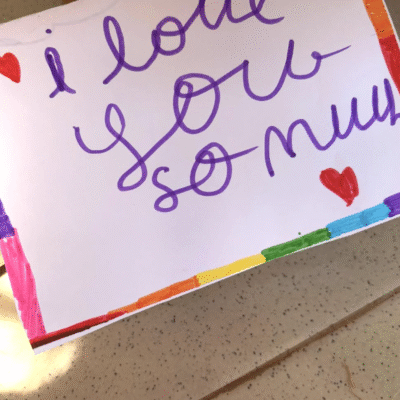 i love
you
so much